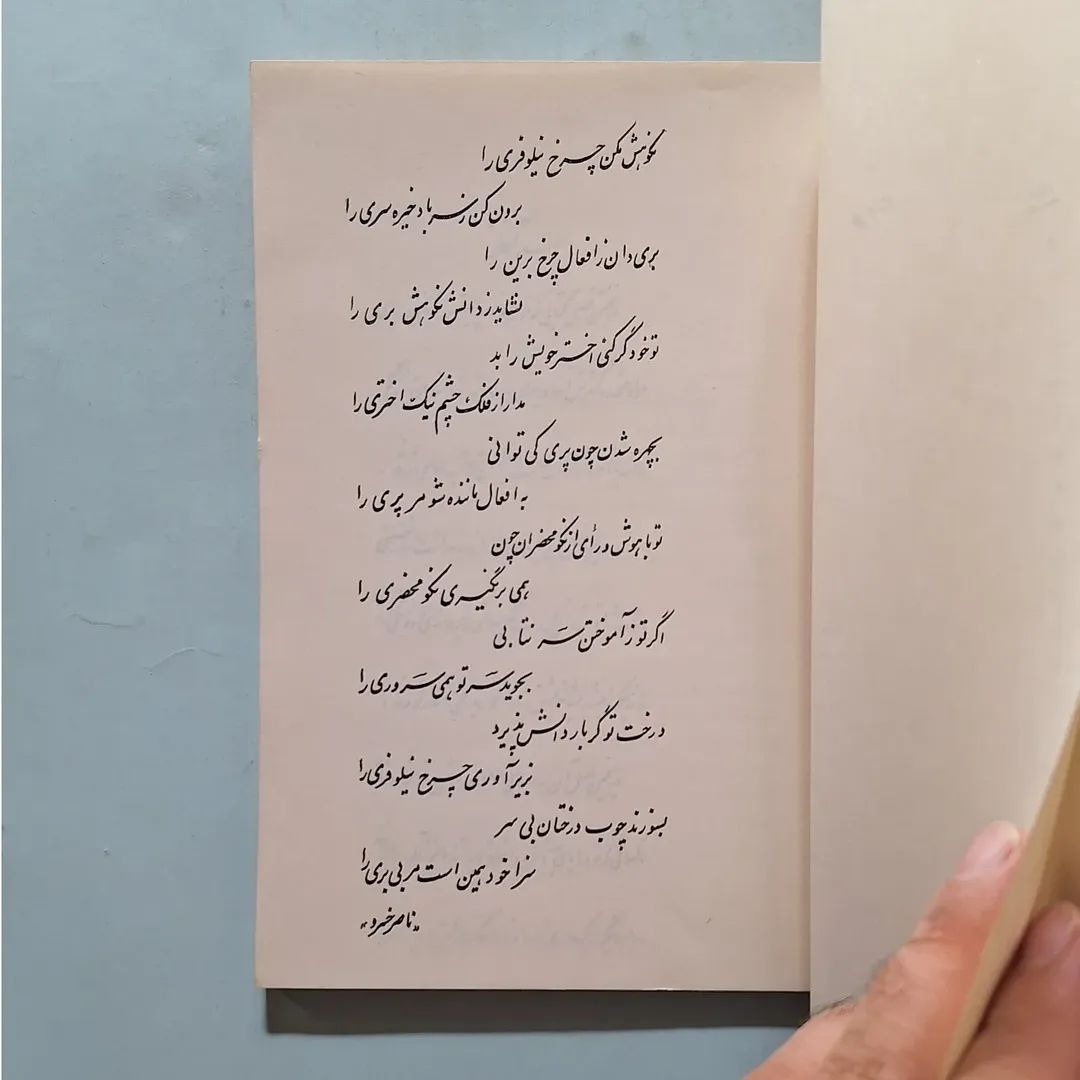 نکوهش مکن چرخ نیلوفری را
برون کن ز سر باد خیره سری را
بری دان ز افعال چرخ برین را
نشاید ز دانش نکوهش بری را
تو خود گر کنی اختر خویش را بد
مدار از فلک چشم نیک اختری را
بچهره شدن چون پری کی توانی
به افعال ماننده شو مر پری را
تو با هوش و رأی از نکو محضران چون
همی برنگیری نکو محضری را
اگر تو ز آموختن سر نتابی
بجوید سر تو همی سروری را
درخت تو گر بار دانش پذیرد
بزیر آوری چرخ نیلوفری را
بسوزند چوب درختان بی سر
سزا خود همین است مر بی بری را
«ناصر خسرو»